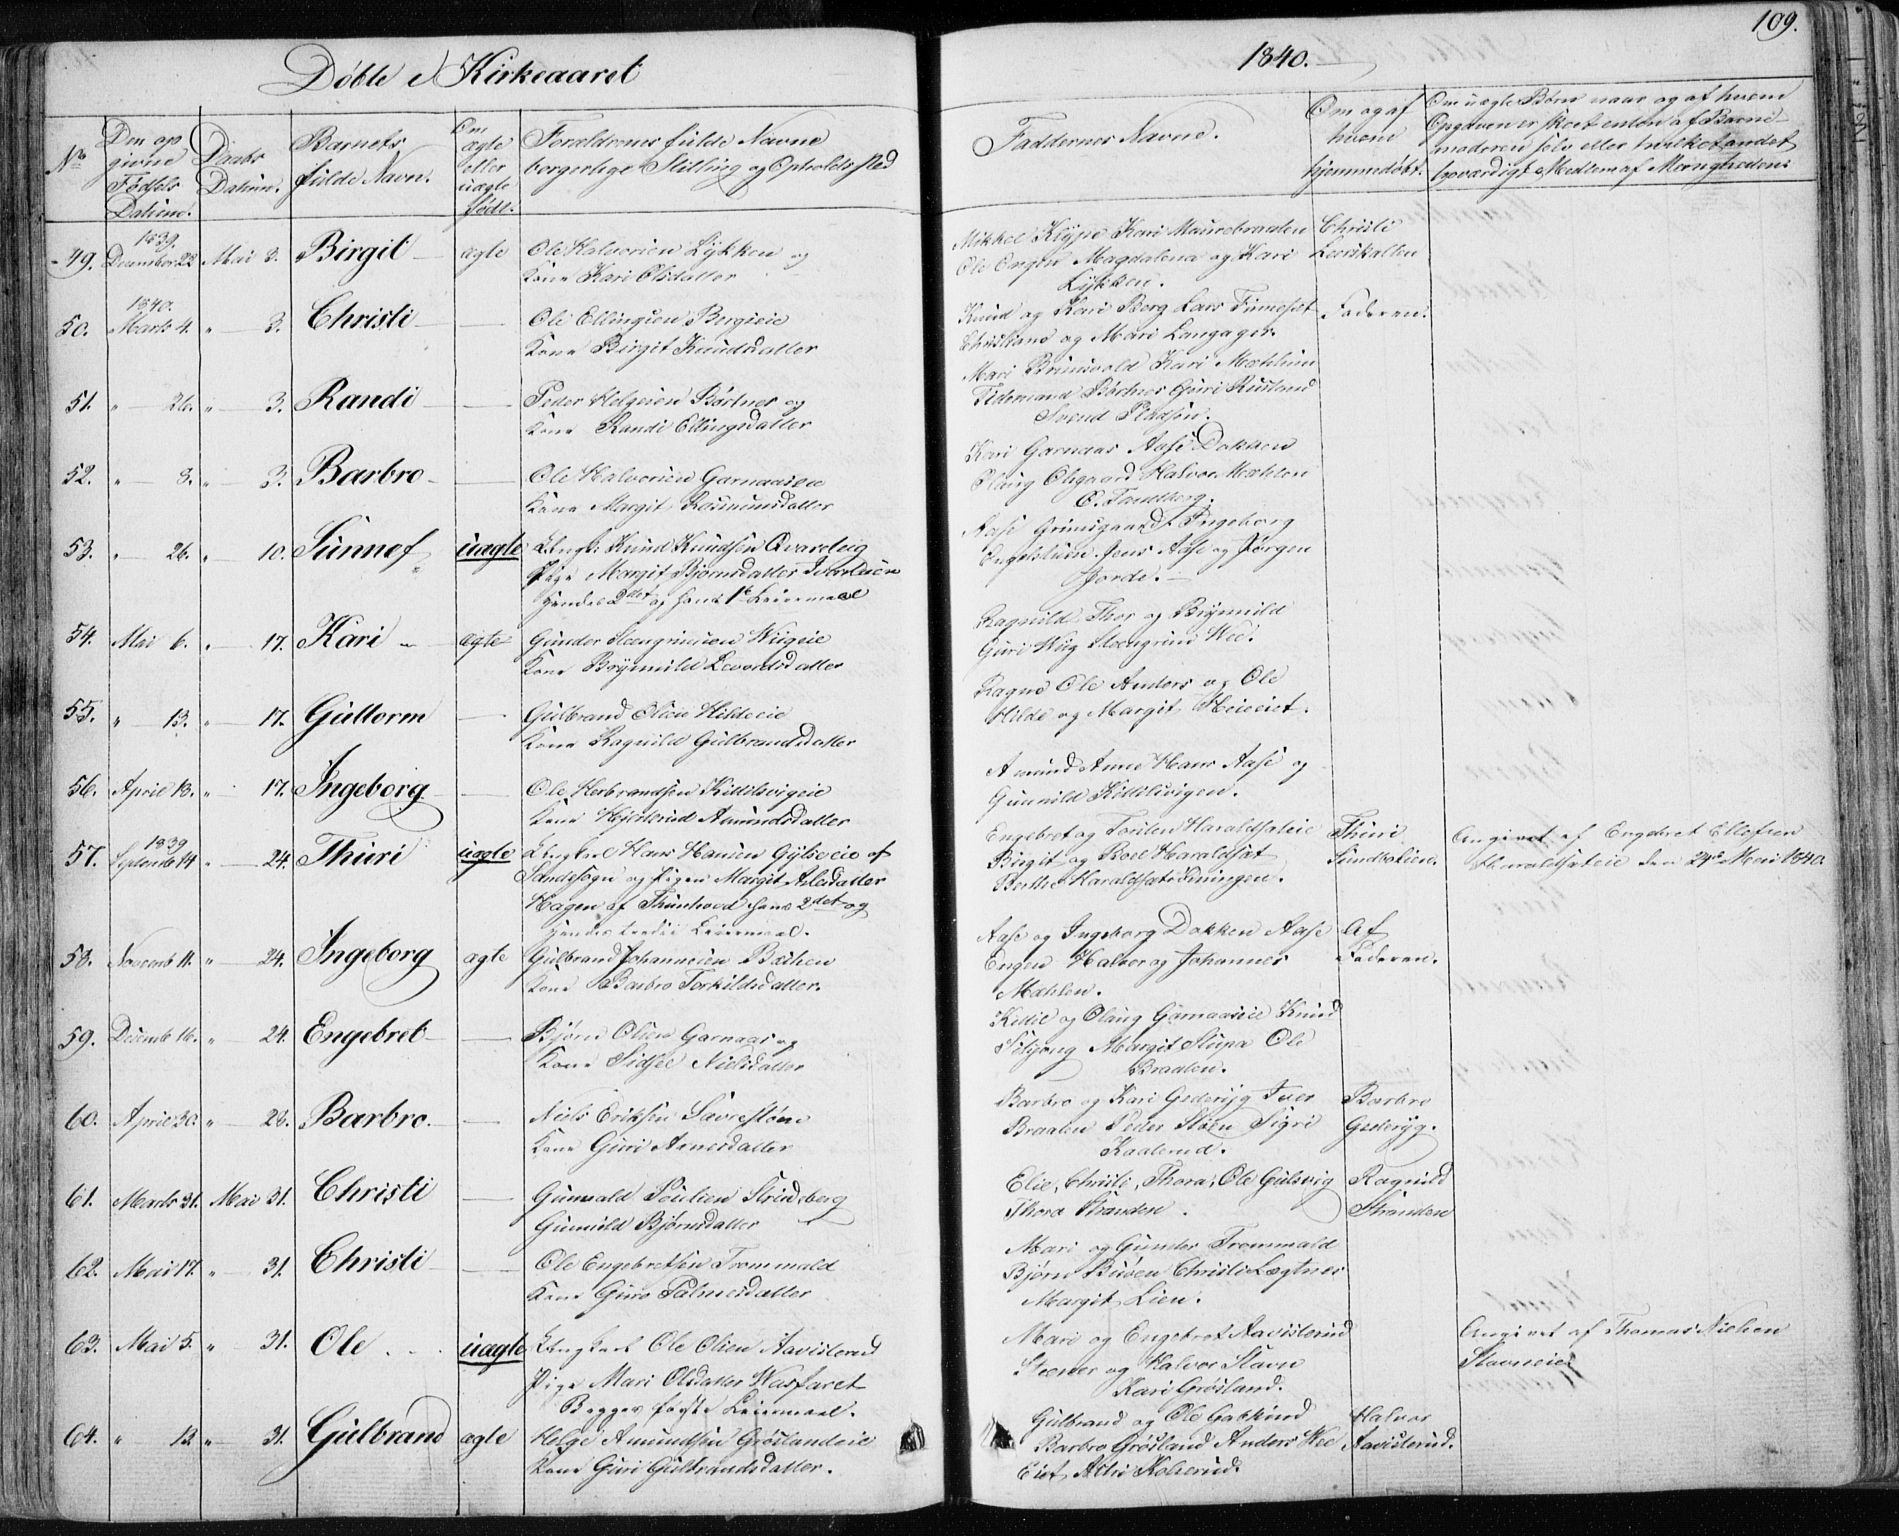 109.
Døbte i Kirkeaaret
1840.
No
Den op
givne
Fødsels
Datum.
Daabs
Datum.
Barnets
fulde Navn.
Om
ægte
eller
uægte
født.
Forældrenes fulde Navne
borgerlige Stilling og Opholdssted
Faddernes Navne.
Om og af
hvem
hjemmedøbt.
Om uægte Børn naar og af hvem
Opgaven er skeet enten af Barne
moderen selv eller hvilket andet
troværdigt Medlem af Menigheden.
49. 1839. December 22 Mai 3. Birgit ægte Ole Halvorsen Lykken og
Kone Kari Olsdatter
Mikkel Klype Kari Maurebraaten
Ole Engen Magdalena og Kari
Lykken.
Christi
50. 1840. Marts 4. " 3. Christi Ole Ellingsen Bergseie
Kone Birgit Knudsdatter
Knud og Kari Berg Lars
Christiane og Mari Langager.
Faderen.
51. " 26. " 3. Randi Peder Helgesen Børtnes og
Kone Randi Ellingsdatter
Mari Brunvold Kari Mæhlum
Tidemand Børtnes Guri Rustand
Svend
52. " 8. " 3. Barbro Ole Halvorsen Garnaasen
Kone Margit
Kari Garnaas Aase Dokken
Olaug Olsgaard Halvor Mæhlen
O. Sandberg.
53. " 26. " 10. Sünnef uægte Ungk. Knud Knudsen
Pige Margit Bjørnsdatter
Hendes 2det og hans 1te Leiermaal
Aase Grimsgaard Ingeborg
Jens Aase og Jørgen
Jorde.
54. Mai 6. " 17. Kari ægte Gunder Steengrimsen Wiigeie
Kone Brynnild Levordsdatter
Ragnild Thor og Brynnild
Guri Wiig Steengrim Wee.
55. " 13. " 17. Guttorm Gulbrand Olsen Hildeeie
Kone Ragnild Gulbrandsdatter
Ragne Ole Anders og Ole
Hilde og Margit Heieiet.
56. April 13. " 17. Ingeborg Ole Herbrandsen Kittilsvigeie
Kone Hjertrud Amundsdatter
Amund Anne Hans Aase og
Gunnild Kittilsvigen.
57. 1839 Septemb 14 " 24. Thuri uægte Ungkarl Hans Hansen af
Sandesogn og Pigen Margit Atlesdatter
Hagen af Thunhovd hans 2det og
hendes tredie Leiermaal.
Engebret og Torsten Haraldseteie
Birgit og Boel Haraldset
Berthe Haraldset
Thuri
Angivet af Engebret Ellefsen
Haraldseteie den 24de Mai 1840.
58. Novemb 11. " 24. Ingeborg ægte Gulbrand Johannesen Bæhen
Kone Barbro Torkildsdatter.
Aase og Ingeborg Dokken Aase
Engen Halvor og Johannes
Mæhlen.
Af
Faderen.
59. Decemb 16. " 24. Engebret Bjørn Olsen Garnaas og
Kone Sidsel Nielsdatter
Kittil og Olaug Garnaaseie Knud
Margit Ole
Braaten.
60. April 30. " 28. Barbro. Niels Eriksen
Kone Guri Arnesdatter
Barbro og Kari Gederyg Iver
Braaten Peder Støen Sigri
Kaalerud.
Barbro
Gederyg.
61. Marts 31. Mai 31. Christi Gunvald Poulsen Strindsberg
Gunnild Bjørnsdatter
Elie, Christi, Thora, Ole Gulsvig
Thora Stranden.
Ragnild
Stranden
62. Mai 17. " 31. Christi Ole Engebretsen Trommald
Kone Guro Palmesdatter
Mari og Gunder Trommald
Bjørn Buøen Christi Lægtnes
Margit Lien.
63. Mai 5. " 31. Ole uægte Ungkarl Ole Olsen Aavisterud
Pige Mari Olsdatter Wasfaret
Begges første Leiermaal.
Mari og Engebret Aavisterud
Steener og Halvor Stavn
Kari Grøsland.
Angivet af Thomas Nielsen
Stavneeie
64. " 12. " 31. Gulbrand ægte Helge Amundsen Grøslandeie
Kone Guri Gulbrandsdatter.
Gulbrand og Ole
Barbro Grøsland Anders Wee
Eiet Kolsrud.
Halvor
Aavisterud.